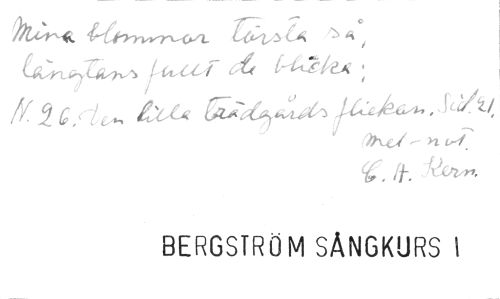 Mina blommor törsta så,
längtans fullt de blicka;
N. 26. Den lilla trädgårdsflickan. Sid. 21.
mel-not.
C. A. Kern.
BERGSTRÖM SÅNGKURS I